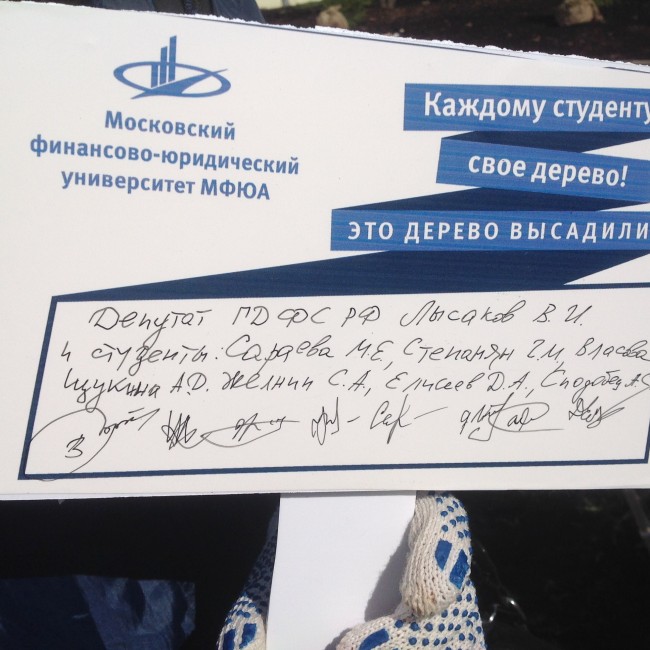 Московский
финансово-юридический
университет МФЮА
Каждому студенту
свое дерево!
ЭТО ДЕРЕВО ВЫСАДИЛИ
Депутат ГД ФС РФ Лысаков В.И.
и студенты: Сараева М.Е., Степанян Г.М, Власова
Щукина А.Д. Желнин С.А., Елисеев Д.А.,